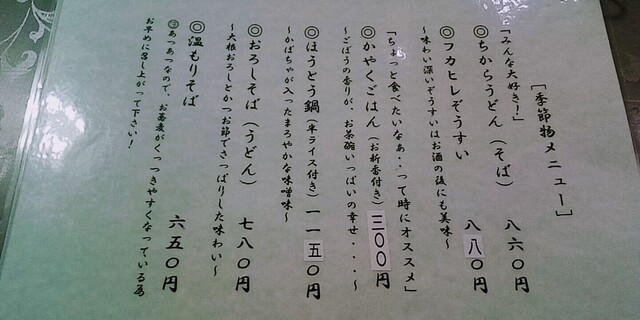 ［季節物メニュー］
「みんな大好き！」
◎ちからうどん（そば）　八六〇円
◎フカヒレぞうすい　八八〇円
〜味わい深いぞうすいはお酒の後にも美味〜
「ちょっと食べたいなぁ・・って時にオススメ」
◎かやくごはん（お新香付き）三〇〇円
〜ごぼうの香りが、お茶碗いっぱいの幸せ・・・〜
◎ほうとう鍋（半ライス付き）一一五〇円
〜かぼちゃが入ったまろやかな味噌味〜
◎おろしそば（うどん）　七八〇円
〜大根おろしとかつお節でさっぱりした味わい〜
◎温もりそば　六五〇円
あつあつなので、お蕎麦がくっつきやすくなっている為
お早めに召し上がって下さい！